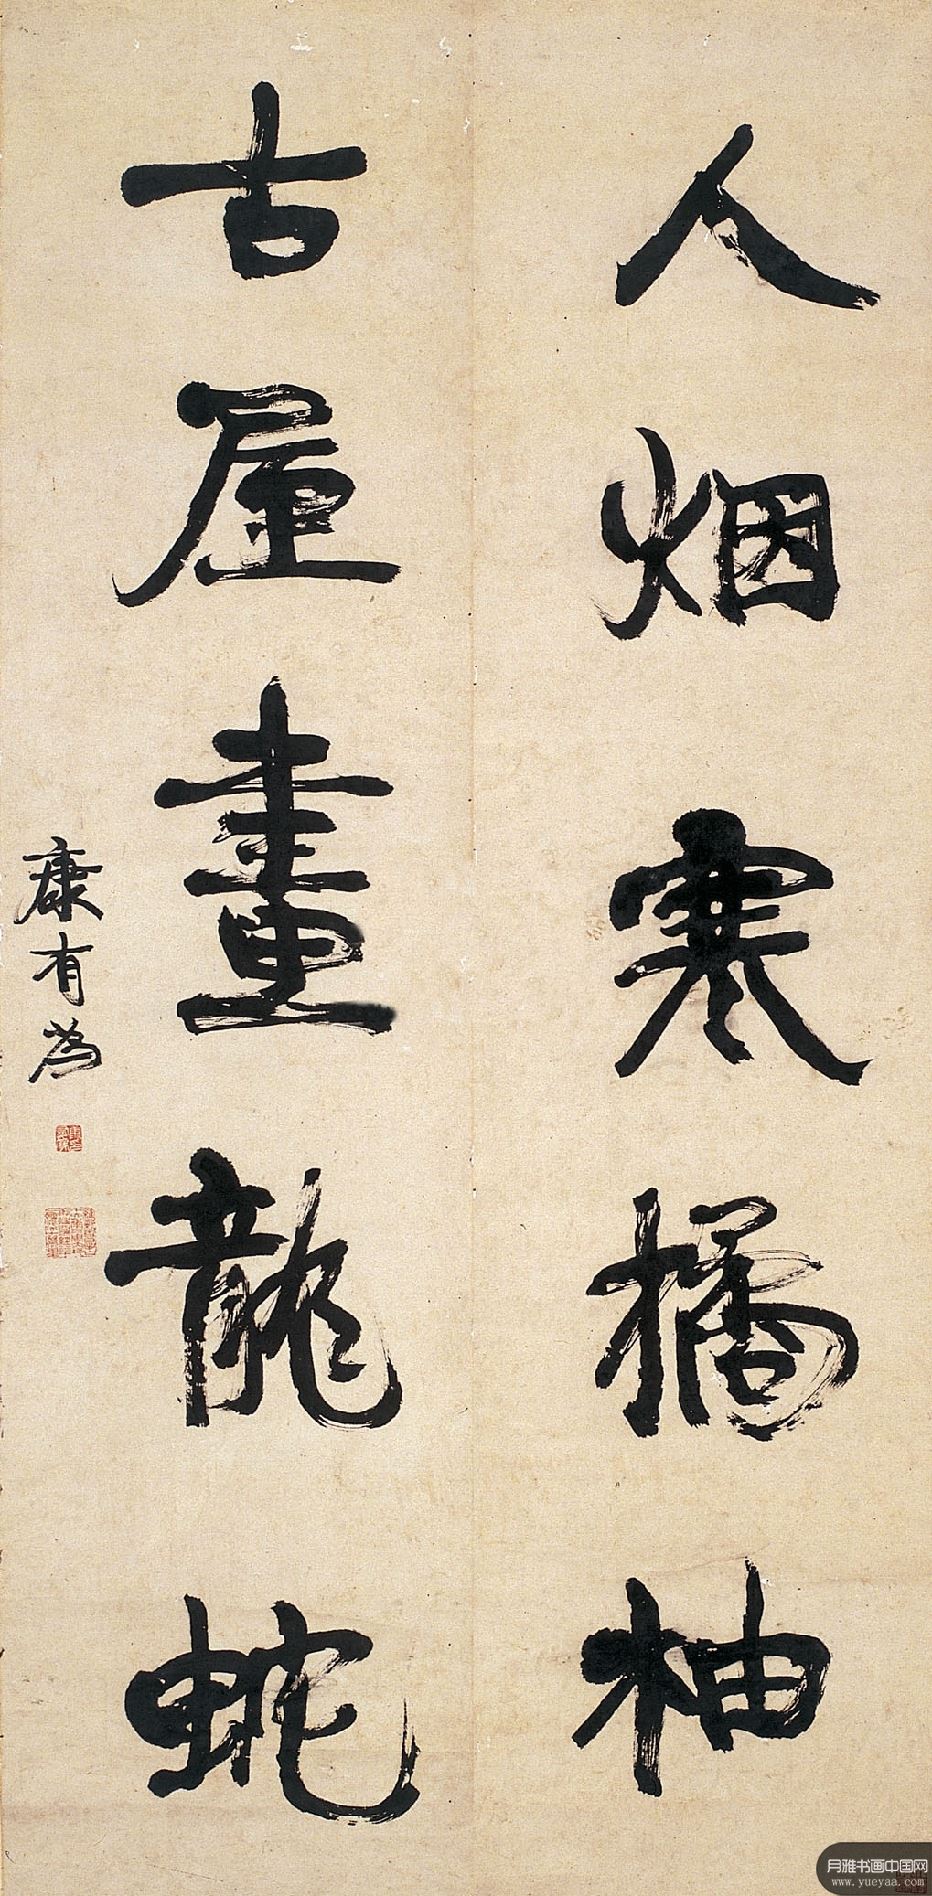 人烟寒橘柚
古屋畫龍蛇
康有為
月雅书画中国网
www.yueyaa.com